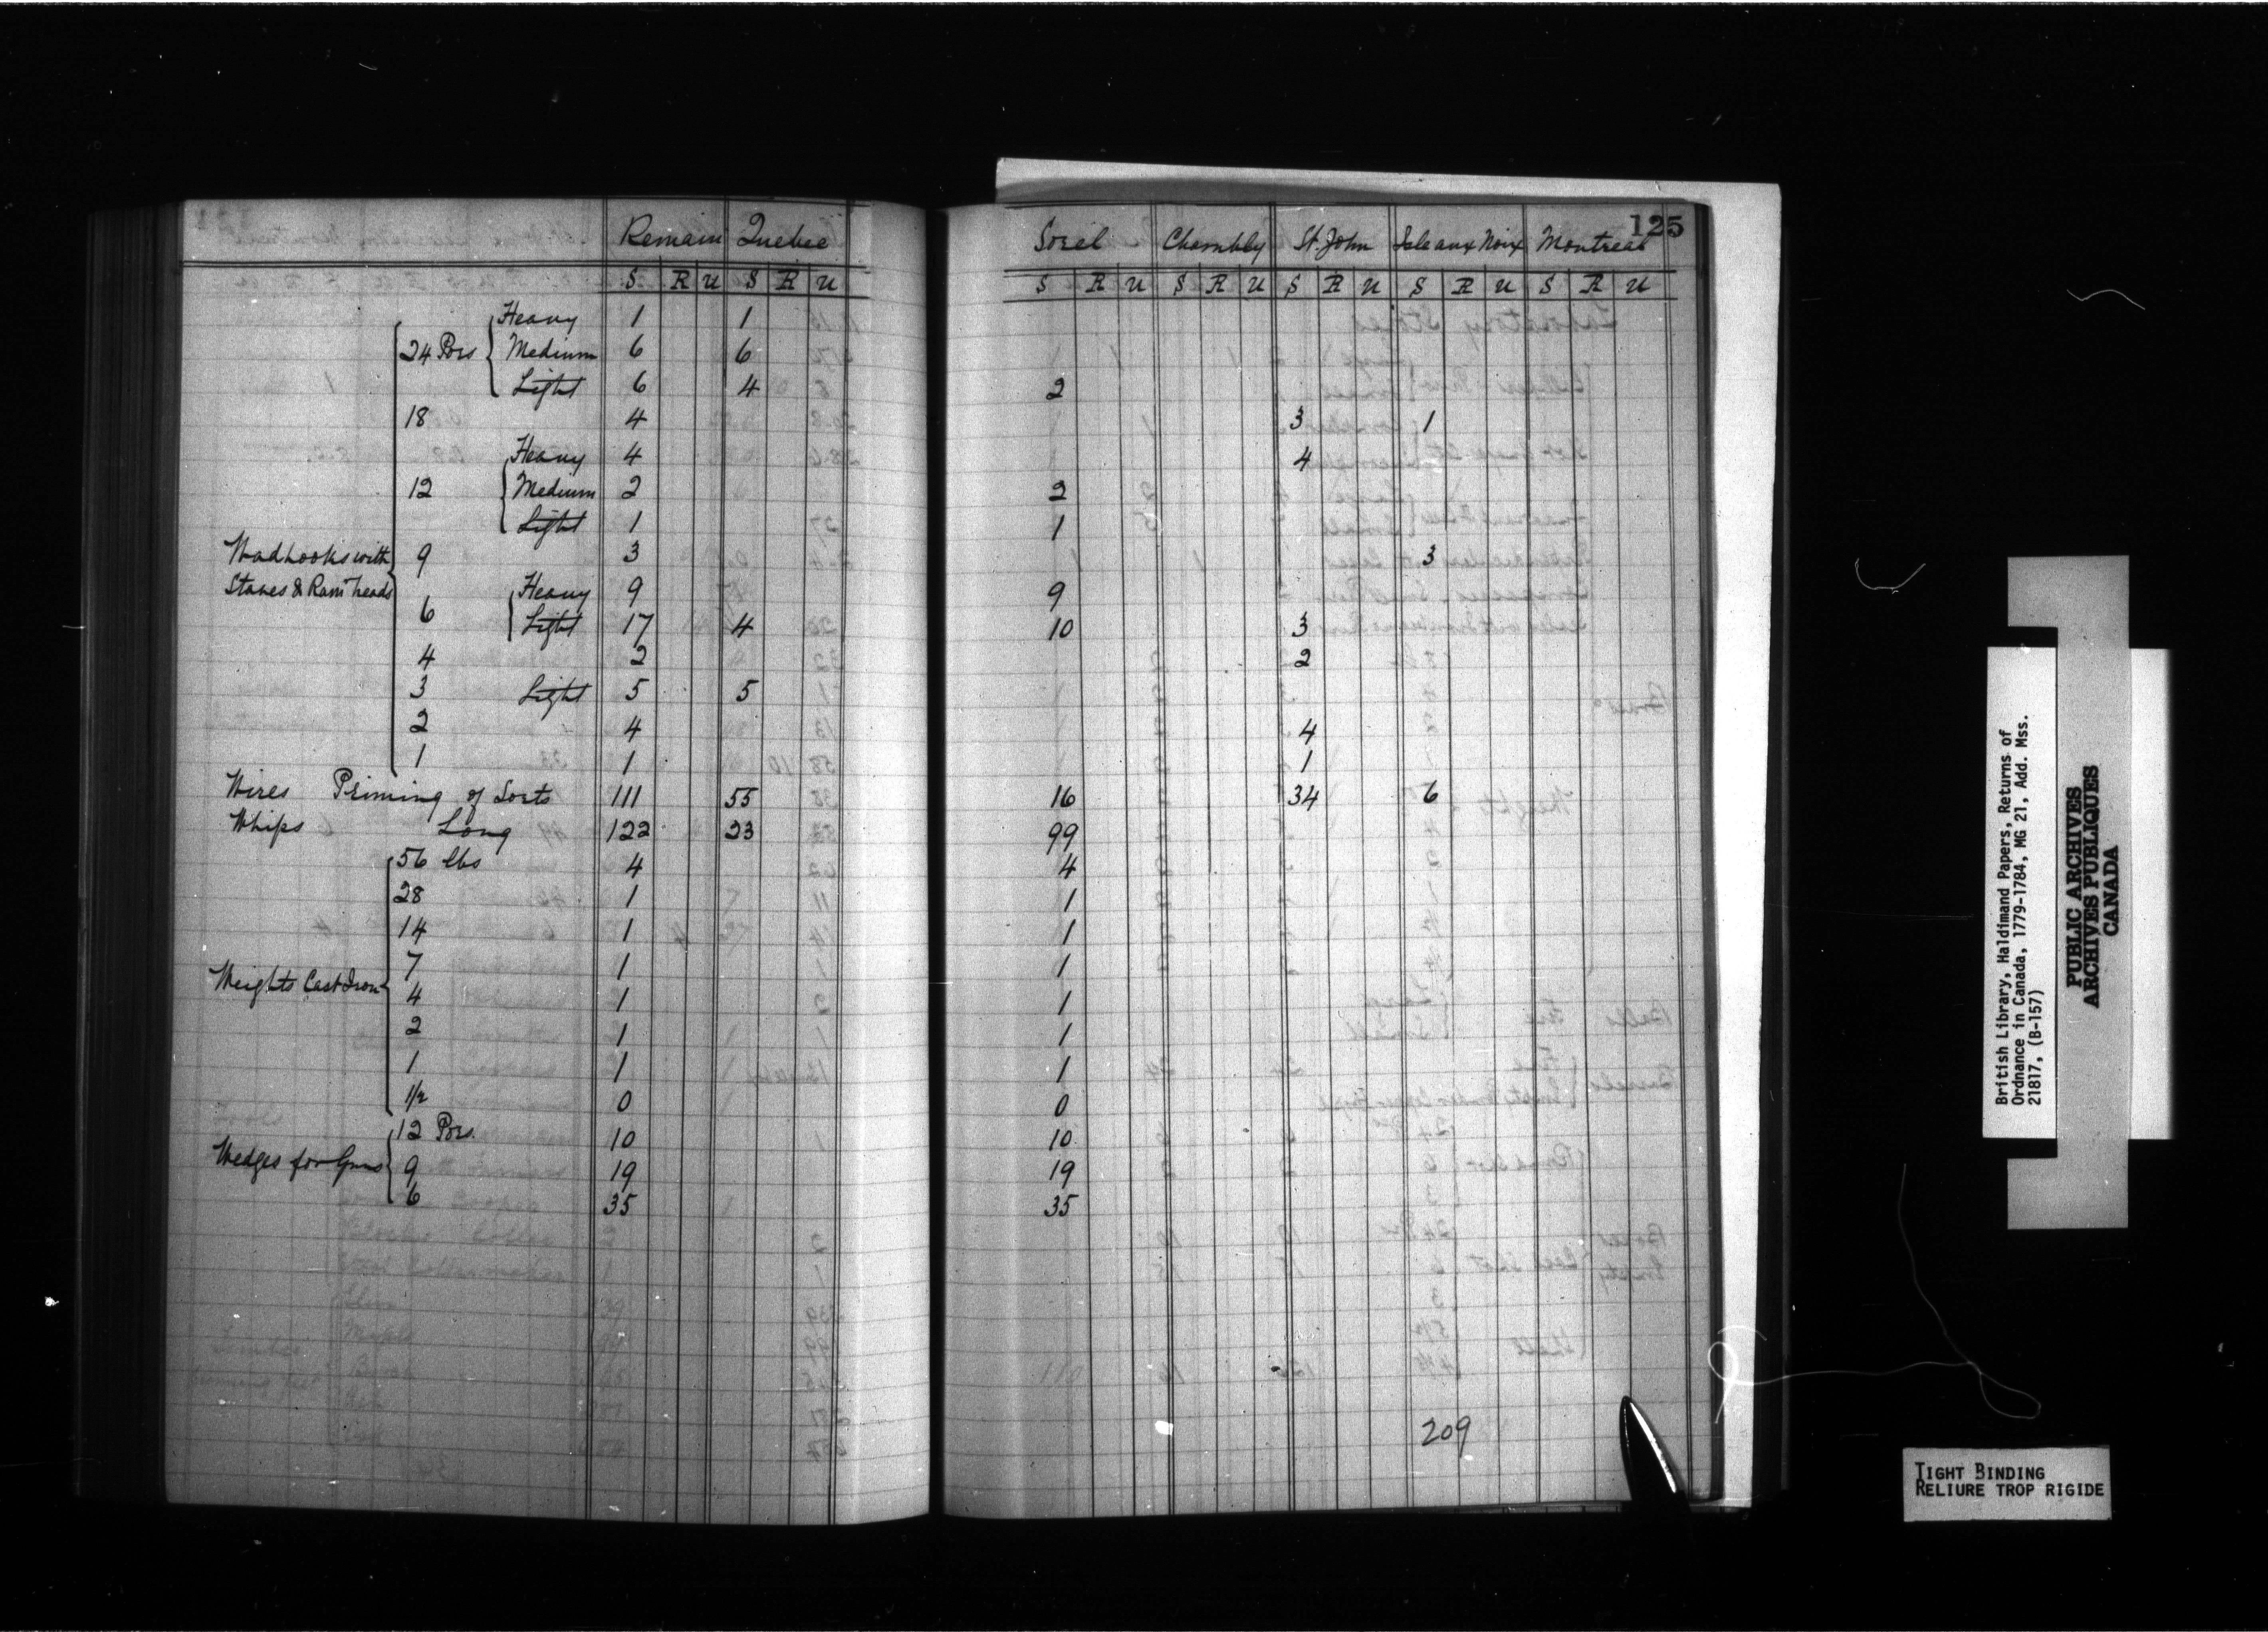 125
Remain Quebec Sorel Chambly St. John Isle aux Noix Montreal
S R U S R U S R U S R U S R U S R U S R U
Heavy 1 1
24 Pors Medium 6 6
Light 6 4 2
18 4 3 1
Heavy 4 4
12 Medium 2 2
Light 1 1
Wadhooks with 9 3 3
Staves & Ram heads Heavy 9 9
6 Light 17 4 10 3
4 2 2
3 Light 5 5
2 4 4
1 1 1
Wires Priming of Sorts 111 55 16 34 6
Whips Long 122 23 99
56 lbs 4 4
28 1 1
14 1 1
7 1 1
Weights Cast Iron
4 1 1
2 1 1
1 1 1
1/2 0 0
12 Pors. 10 10
Wedges for Guns 9 19 19
6 35 35
209
British Library, Haldimand Papers, Returns of
Ordnance in Canada, 1779-1784, MG 21, Add. Mss.
21817, (B-157)
PUBLIC ARCHIVES
ARCHIVES PUBLIQUES
CANADA
TIGHT BINDING
RELIURE TROP RIGIDE